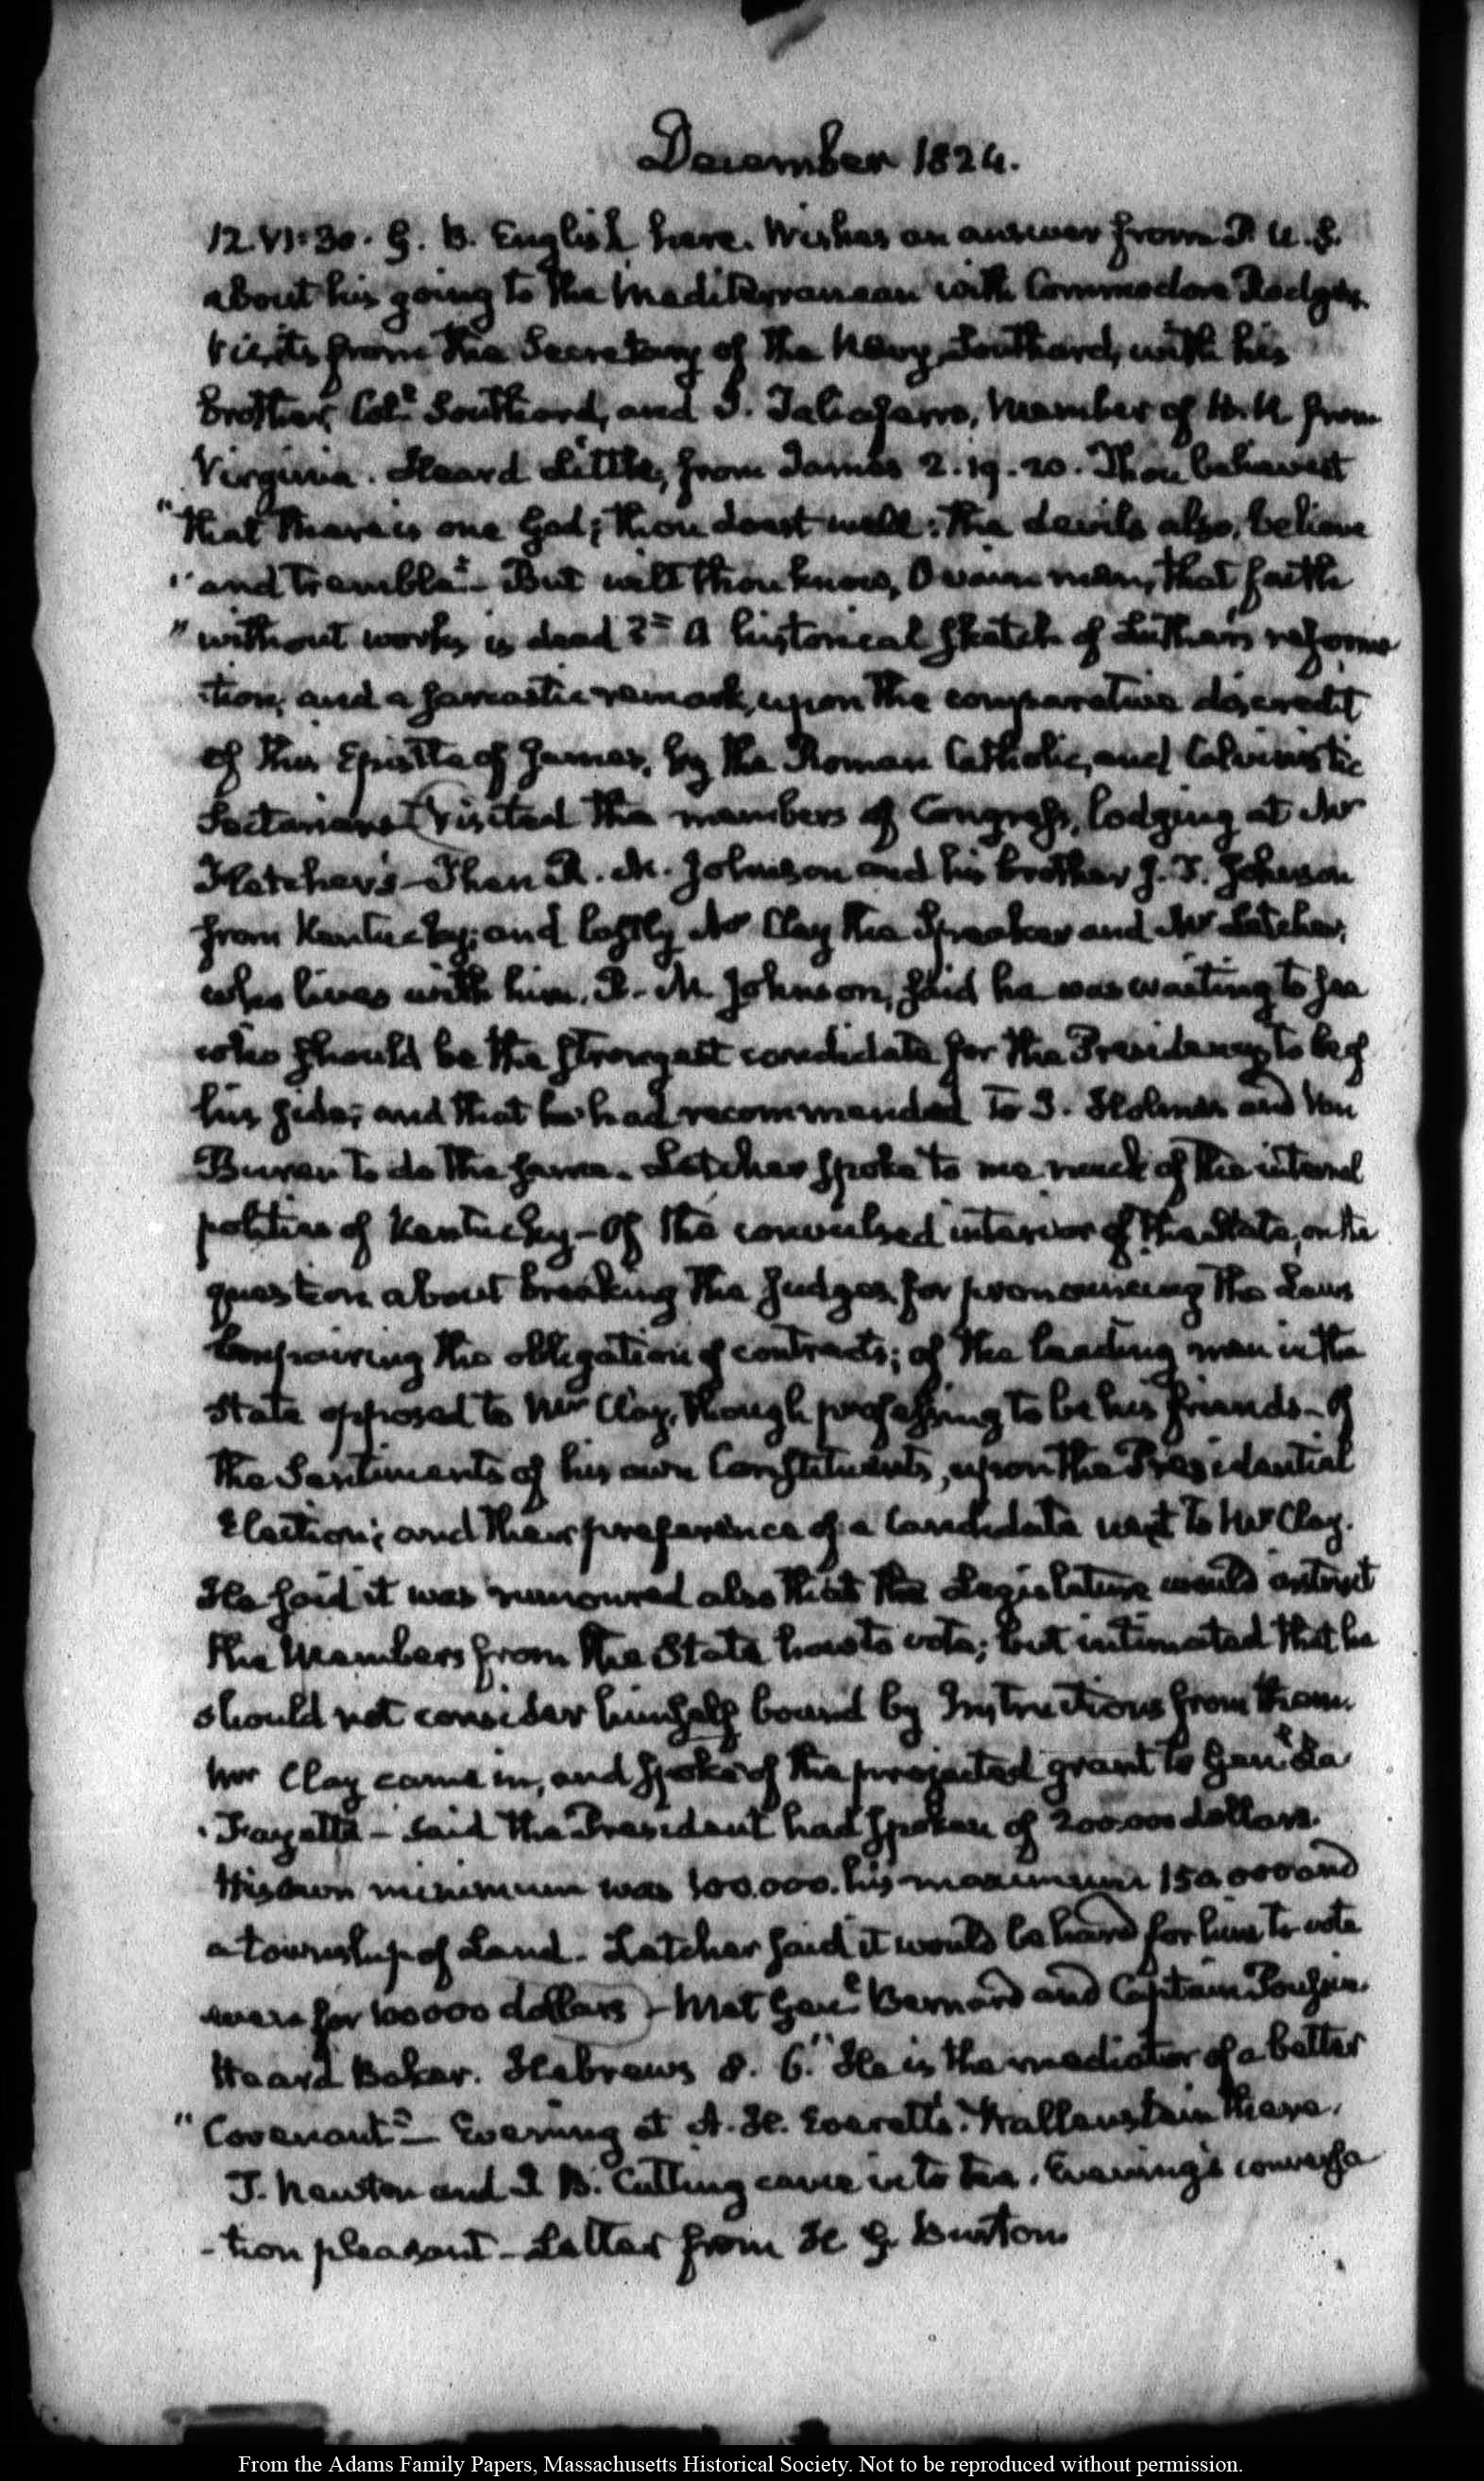 December 1824.
12. VI:30. G. B. English here. Wishes an answer from P. U.S.
about his going to the Mediterranean with Commodore Rodgers.
Visits from the Secretary of the Navy Southard, with his
brother, Col.l Southard, and J. Taliaferro, Member of H.R. from
Virginia. Heard Little, from James 2.19.20. Thou believest
"that there is one God; thou doest well: the devils also, believe
"and tremble."- But wilt thou know, O vain man, that faith
"without works is dead?" A historical sketch of Luther's reforma
-tion, and a sarcastic remark, upon the comparative discredit
of this Epistle of James, by the Roman Catholic, and Calvinistic
Sectarians. (Visited the members of Congress, lodging at Mr
Fletcher's- Then R. M. Johnson and his brother J. T. Johnson
from Kentucky; and lastly Mr Clay the Speaker and Mr Letcher,
who lives with him. R. M. Johnson, said he was waiting to see
who should be the strongest candidate for the Presidency, to be of
his side; and that he had recommended to J. Holmes and Van
Buren to do the same. Letcher spoke to me much of the internal
politics of Kentucky- Of the convulsed interior of the State, on the
question about breaking the judges for pronouncing the Laws
impairing the obligation of contracts; of the leading men in the
State opposed to Mr Clay, though professing to be his friends- of
the Sentiments of his own Constituents, upon the Presidential
Election; and their preference of a Candidate next to Mr Clay.
He said it was rumoured also that the Legislature would instruct
the Members from the State how to vote; but intimated that he
should not consider himself bound by Instructions from them.
Mr Clay came in, and spoke of the projected grant to Gen.l La
Fayette- said the President had spoken of 200.000 dollars.
His own minimum was 100.000. his maximum 150.000 and
a township of Land. Letcher said it would be hard for him to vote
even for 100000 dollars)- Met Gen.l Bernard and Captain Poussin.
Heard Baker. Hebrews 8. 6. "He is the mediator of a better
"Covenant"- Evening at A. H. Everett's. Wallenstein there.
T. Newton and J B. Cutting came in to tea. Evening's conversa
-tion pleasant- Letter from H G Burton.
From the Adams Family Papers, Massachusetts Historical Society. Not to be reproduced without permission.